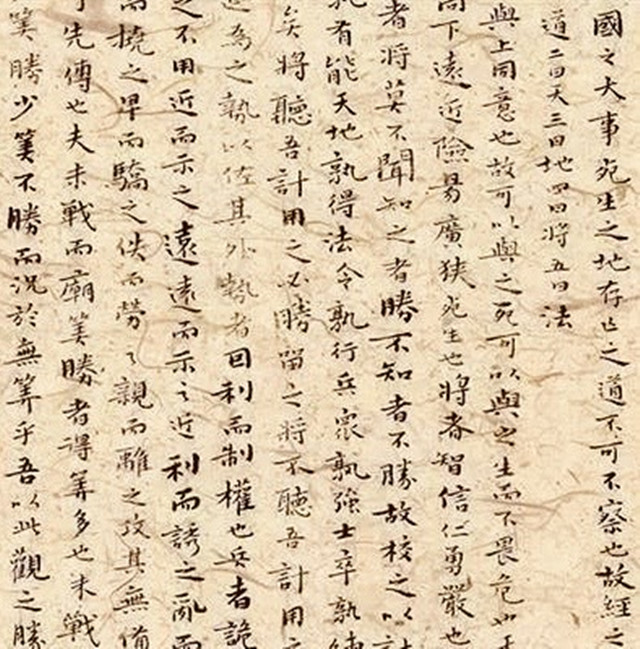 國之大事死生之地存亡之道不可不察也故經之
道二曰天三曰地四曰將五曰法
與上同意也故可以與之死可以與之生而不畏危也
高下遠近險易廣狹死生也將者智信仁勇嚴也
者將莫不聞知之者勝不知者不勝故校之以計
孰有能天地孰得法令孰行兵眾孰強士卒孰練
矣將聽吾計用之必勝留之將不聽吾計用之
為之勢以佐其外勢者因利而制權也兵者詭
之不用近而示之遠遠而示之近利而誘之亂而
而撓之卑而驕之佚而勞之親而離之攻其無備
先傳也夫未戰而廟筭勝者得筭多也未戰
筭勝少筭不勝而況於無筭乎吾以此觀之勝